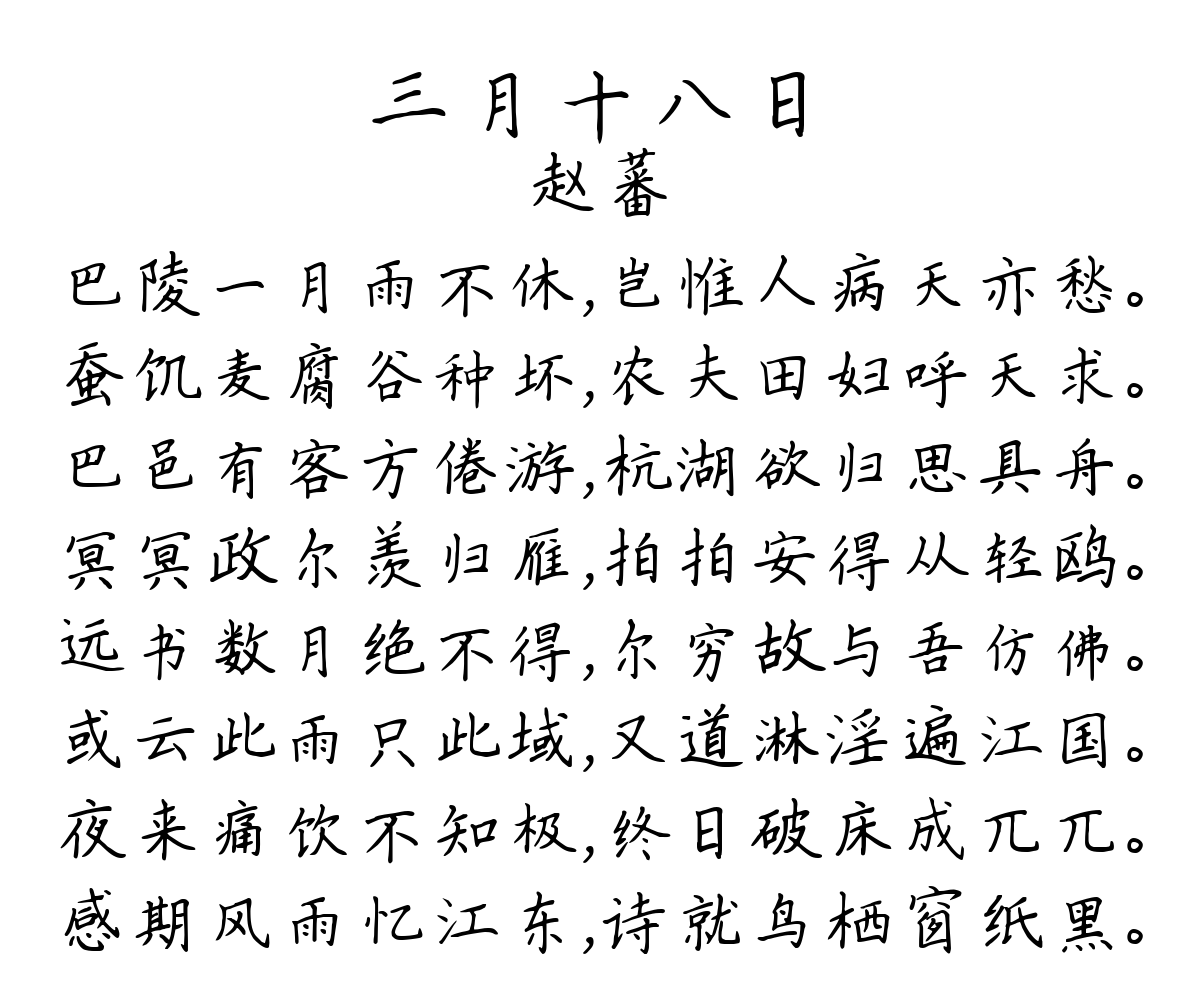 三月十八日
赵蕃
巴陵一月雨不休,岂惟人病天亦愁。
蚕饥麦腐谷种坏,农夫田妇呼天求。
巴邑有客方倦游,杭湖欲归思具舟。
冥冥政尔羡归雁,拍拍安得从轻鸥。
远书数月绝不得,尔穷故与吾仿佛。
或云此雨只此域,又道淋淫遍江国。
夜来痛饮不知极,终日破床成兀兀。
感期风雨忆江东,诗就鸟栖窗纸黑。